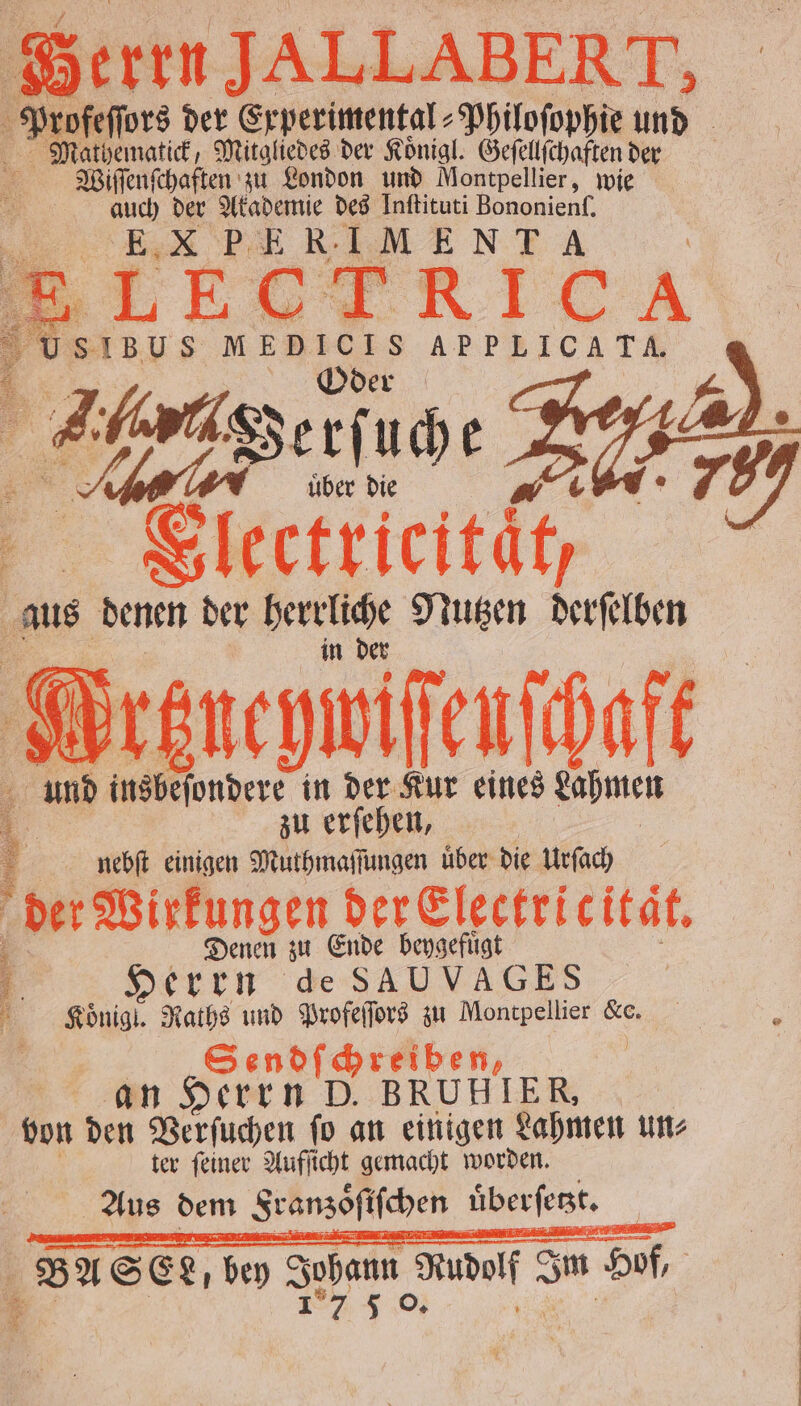 Herrn JALLABERT,
Profeſſors der Experimental⸗Philoſophie und
Mathematick, Mitgliedes der Königl. Geſellſchaften der
Wiſſenſchaften zu London und Montpellier, wie
auch der Akademie des Inſtituti Bononienſ.
EXPERIMENTA
ELECTRICA
USIBUS MEDICIS APPLICATA.
Oder
Verſuche
über die
789
Electricität,
aus denen der herrliche Nutzen derſelben
in der
Artzneywiſſenſchaft
und insbeſondere in der Kur eines Lahmen
zu erſehen,
nebſt einigen Muthmaſſungen über die Urſach
der Wirkungen der Electricität.
Denen zu Ende beygefügt
Herrn de SAUVAGES
Königl. Raths und Profeſſors zu Montpellier &c.
Sendſchreiben,
an Herrn D. BRUHIER,
von den Verſuchen ſo an einigen Lahmen un⸗
ter ſeiner Aufſicht gemacht worden.
Aus dem Franzöſiſchen überſetzt.
BASEL, bey Johann Rudolf Im Hof,
1750.